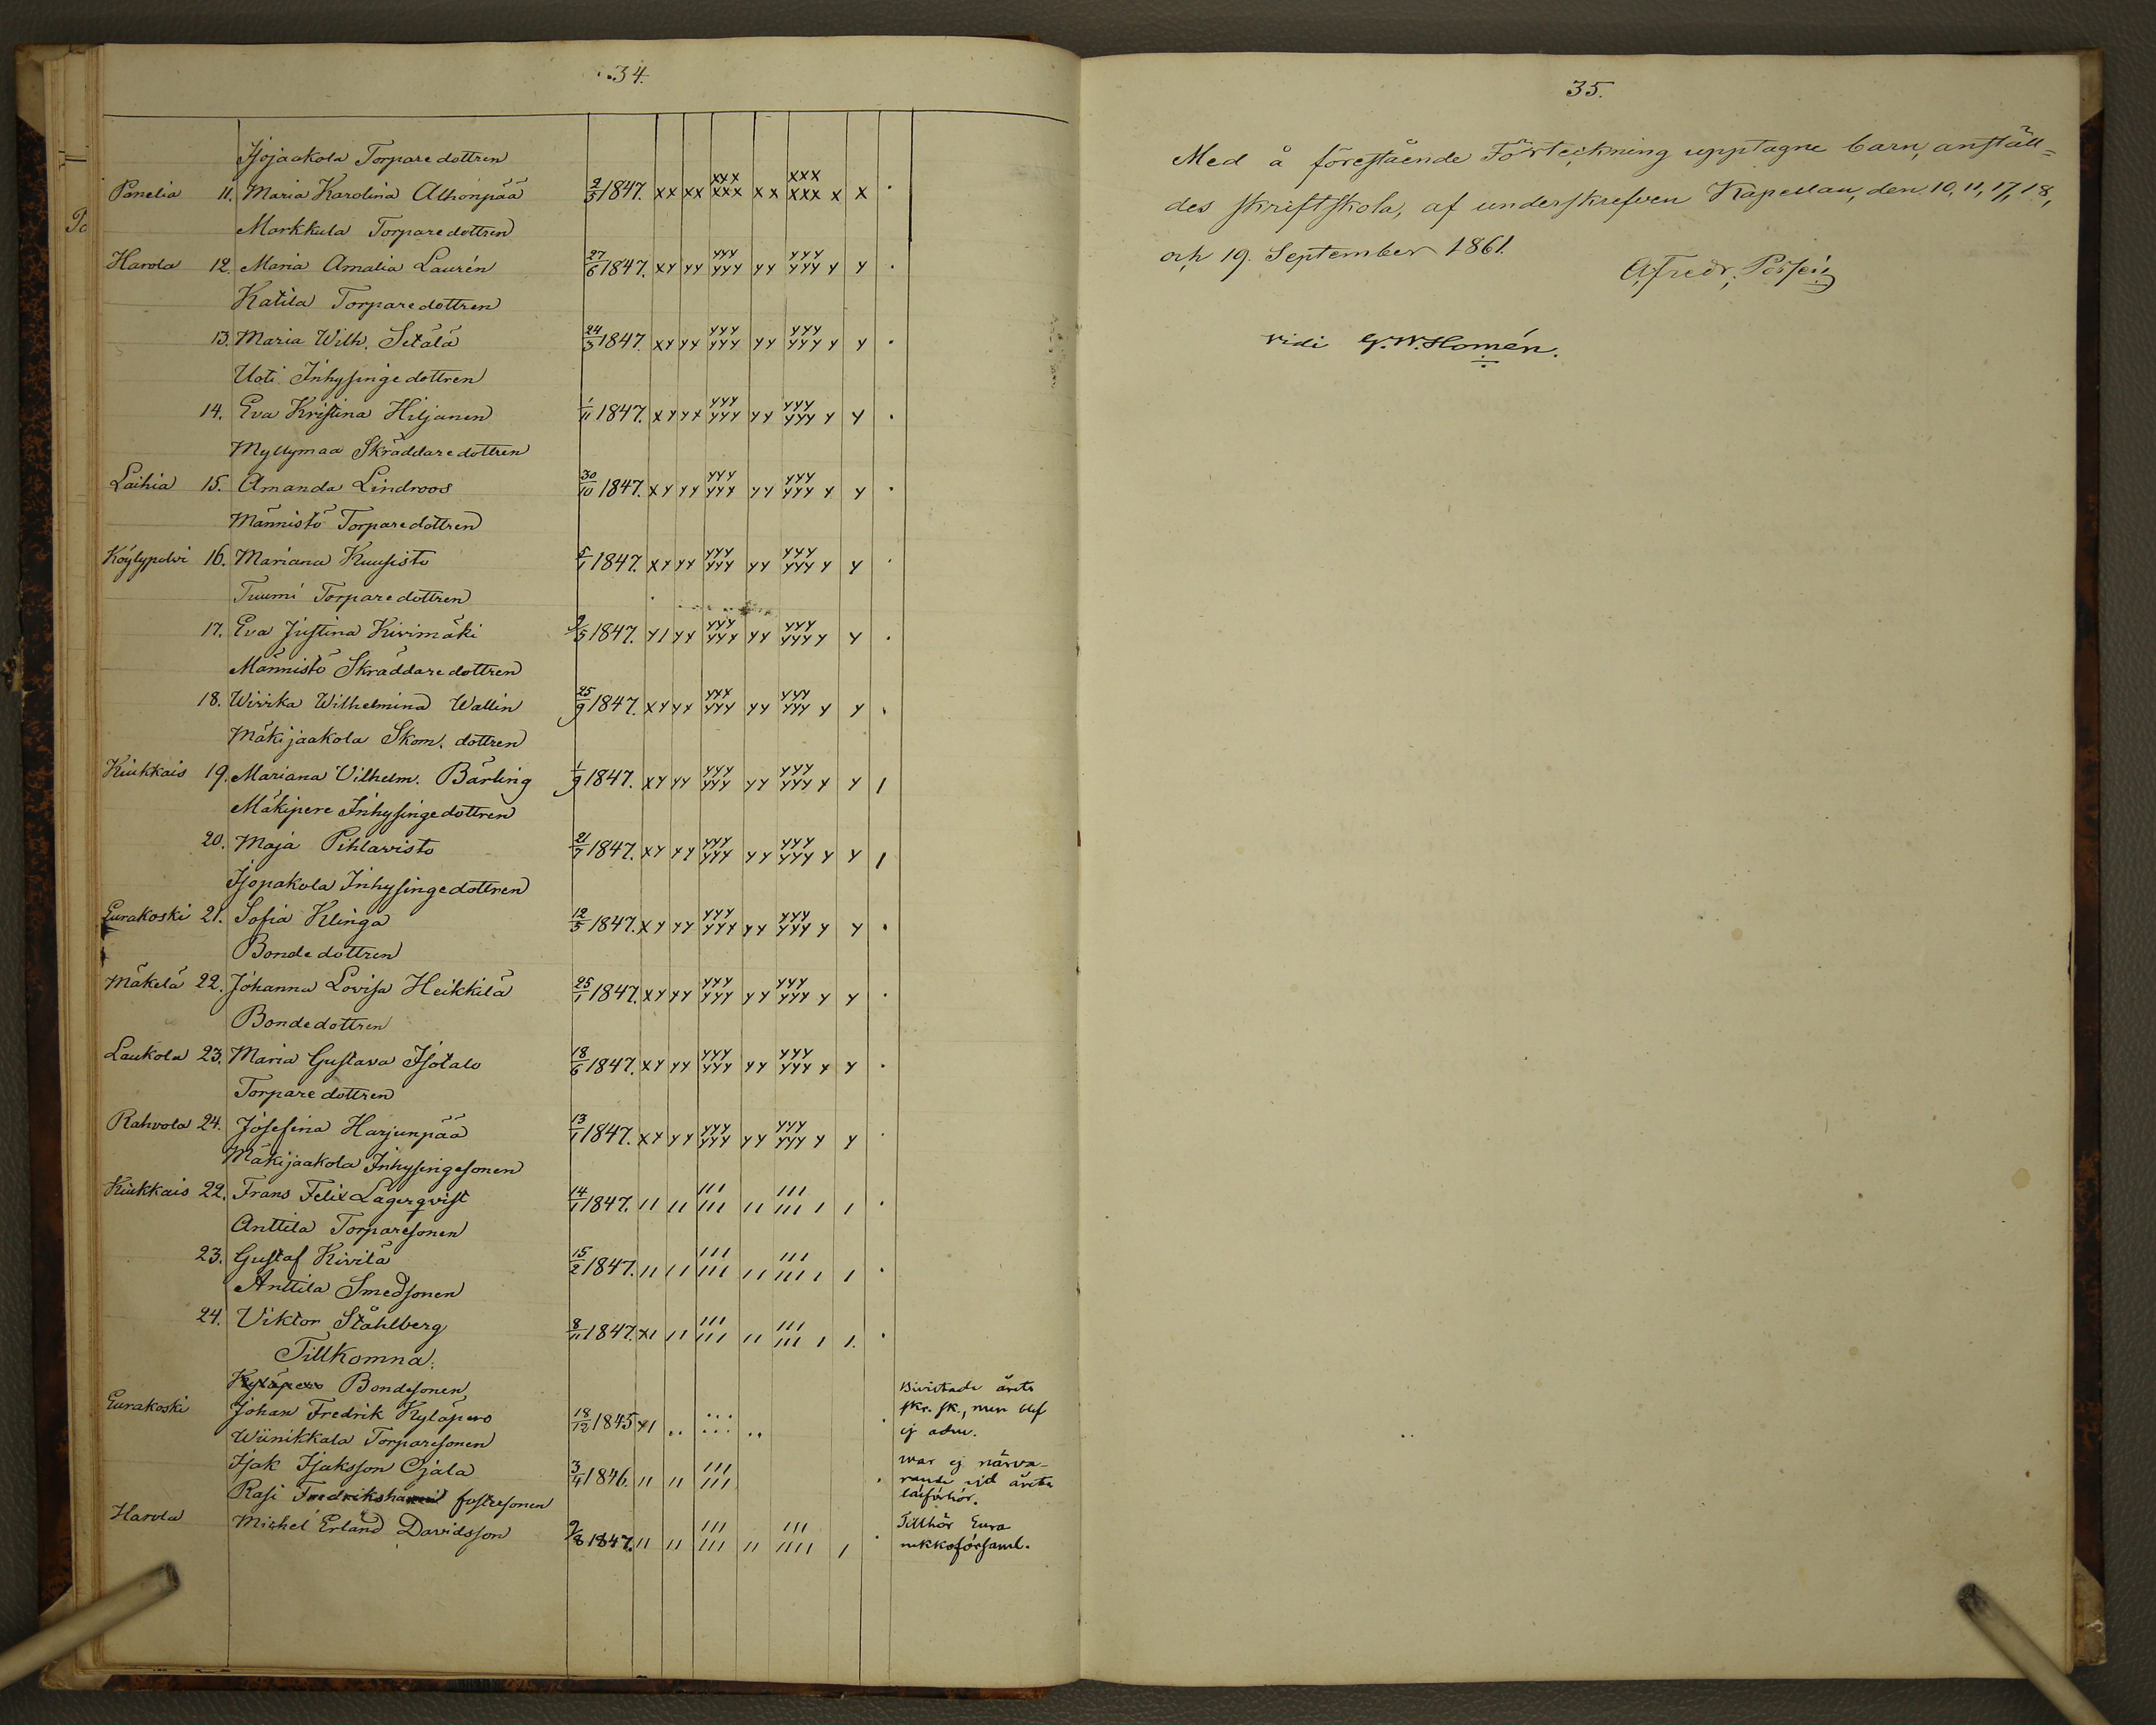 34.
Isojaakola Torparedottren
Panelia 11. Maria Karolina Alhonpää 2/5 1847. xx xx xxx xxx xx xxx xxx x x .
Markkula Torparedottren
Harola 12. Maria Amalia Laurén 27/6 1847. xy yy yyy yyy yy yyy yyy y y .
Katila Torparedottren
13. Maria Wilh. Setälä 24/3 1847. xy yy yyy yyy yy yyy yyy y y .
Uoti Inhysingedottren
14. Eva Kristina Hiljanen 1/11 1847. xy yx yyy yyy yy yyy yyy y y .
Myllymaa Skräddaredottren
Laihia 15. Amanda Lindroos 30/10 1847. xy yy yyy yyy yy yyy yyy y y .
Männistö Torparedottren
Köylypolvi 16. Mariana Kuusisto 5/1 1847. xy yy yyy yyy yy yyy yyy y y .
Tuumi Torparedottren
17. Eva Justina Kivimäki 9/5 1847. y1 yy yyy yyy yy yyy yyy y y .
Männistö Skräddaredottren
18. Wirika Wilhelmina Wallin 25/9 1847. xy yy yyy yyy yy yyy yyy y y .
Mäkijaakola Skom. dottren
Kiukkais 19. Mariana Vilhelm. Bärling 1/9 1847. xy yy yyy yyy yy yyy yyy y y /
Mäkipere Inhysingedottren
20. Maja Pihlavisto 21/7 1847. xy yy yyy yyy yy yyy yyy y y /
Isopakola Inhysingedottren
Eurakoski 21. Sofia Klinga 12/5 1847. xy yy yyy yyy yy yyy yyy y y .
Bondedottren
Mäkelä 22. Johanna Lovisa Heikkilä 25/1 1847. xy yy yyy yyy yy yyy yyy y y .
Bondedottren
Laukola 23. Maria Gustava Isotalo 18/6 1847. xy yy yyy yyy yy yyy yyy y y .
Torparedottren
Rahvola 24. Josefina Harjunpää 13/1 1847. xy yy yyy yyy yy yyy yyy y y .
Mäkijaakola Inhysingesonen
Kiukkais 22. Frans Felix Lagerqvist 14/1 1847. 11 11 111 111 11 111 111 1 1 .
Anttila Torparesonen
23. Gustaf Kivilä 15/2 1847. 11 11 111 111 11 111 111 1 1 .
Anttila Smedsonen
24. Viktor Ståhlberg 8/11 1847. x1 11 111 111 11 111 111 1 1. .
Tillkomna.
Kyläpero Bondesonen
Eurakoski Johan Fredrik Kyläpero 18/12 1845 x1 .. ... ... .. . Bivistade årets skr. sk., men blef ej adm.
Wiinikkala Torparesonen
Isak Isaksson Ojala 3/4 1846. 11 11 111 111 . war ej närva-rande vid årets läsförhör.
Rasi fostresonen
Harola Michel Erland Davidsson 9/8 1847. 11 11 111 111 11 111 1111 1 . Tillhör Eura församl.
35.
Med å förestående Förteckning upptagne barn, anställ-
des skriftskola, af underskrefven Kapellan, den 10, 11, 17, 18,
och 19. September 1861.
A. Fredr.
vidi G. W. Homén.